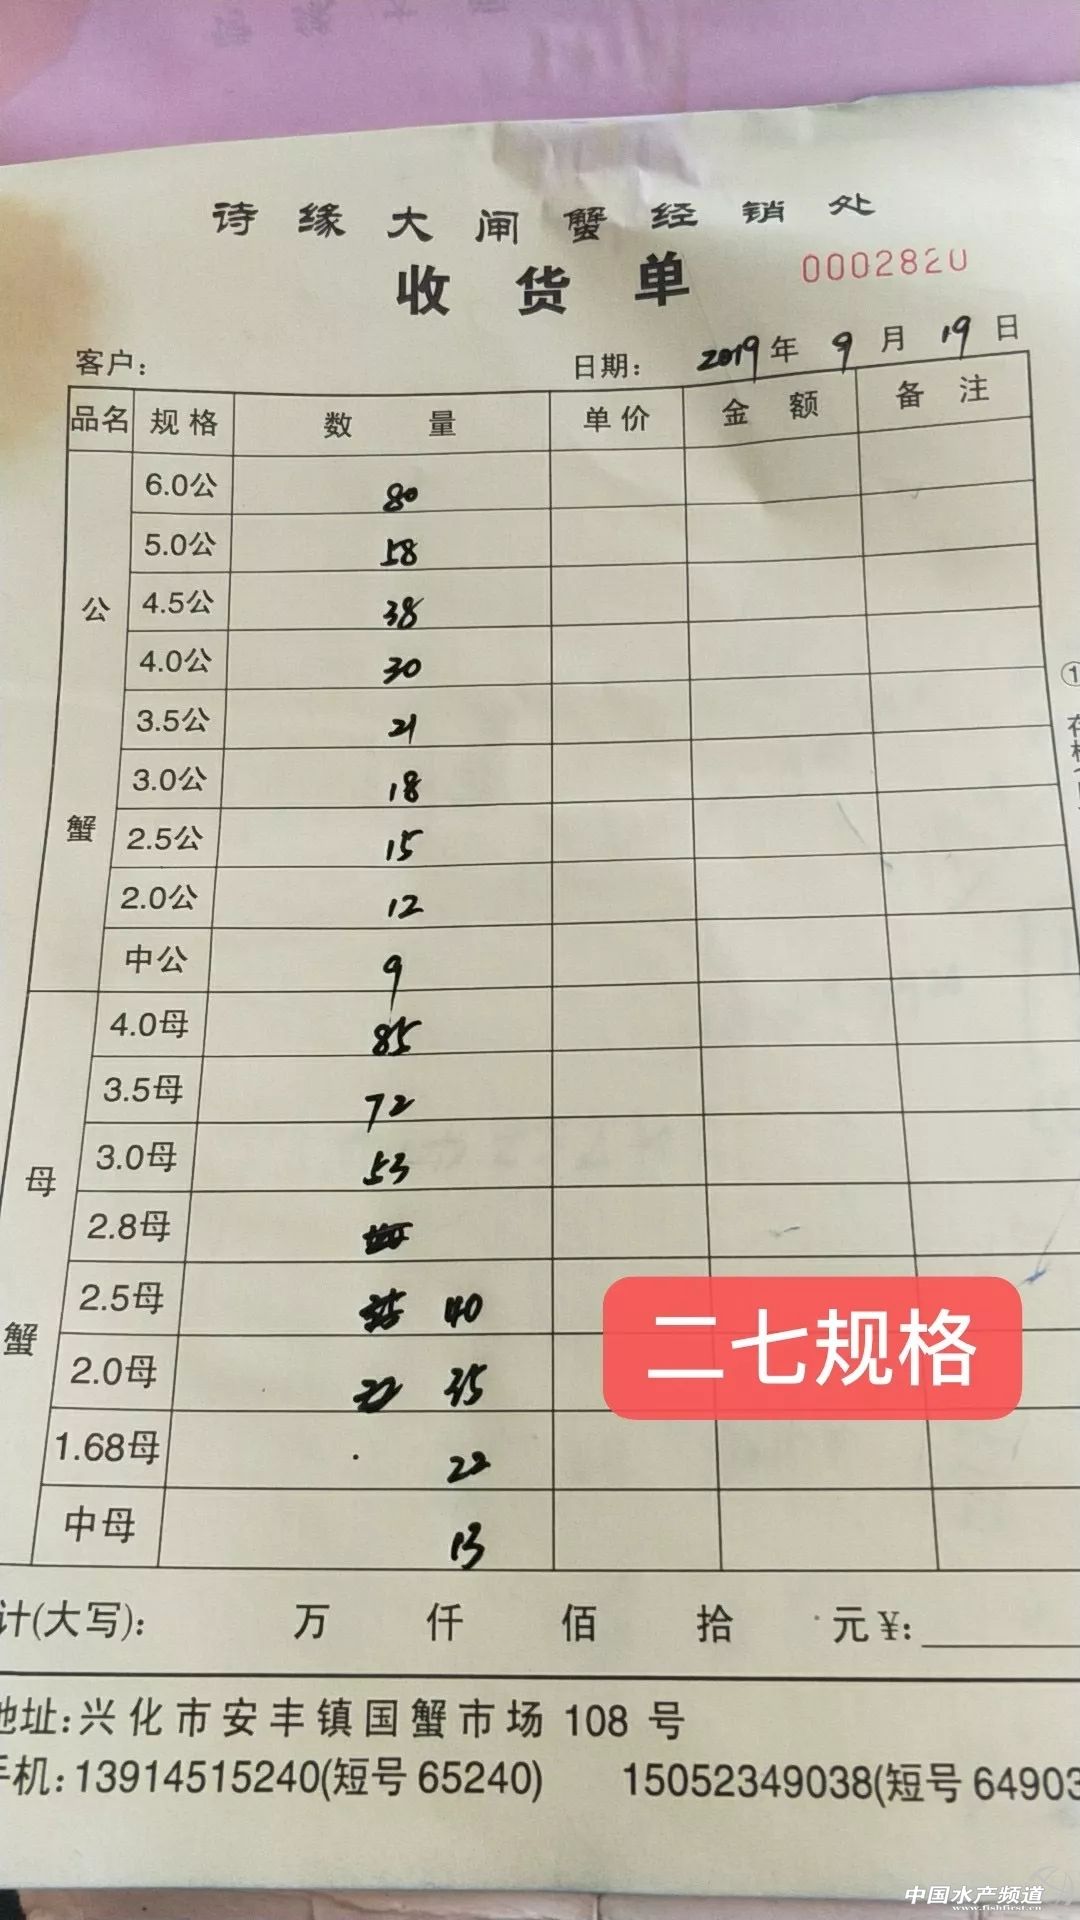 诗缘大闸蟹经销处
收货单 0002820
客户: 日期: 2019年9月19日
品名 规格 数量 单价 金额 备注
公蟹
6.0公 80
5.0公 58
4.5公 38
4.0公 30
3.5公 21
3.0公 18
2.5公 15
2.0公 12
中公 9
母蟹
4.0母 85
3.5母 72
3.0母 53
2.8母
2.5母 40
2.0母 35
1.68母 22
中母 13
二七规格
计(大写): 万 仟 佰 拾 元 ¥:
地址:兴化市安丰镇国蟹市场 108 号
手机:13914515240(短号 65240) 15052349038(短号 64903
①
中国水产频道
www.fishfirst.cn